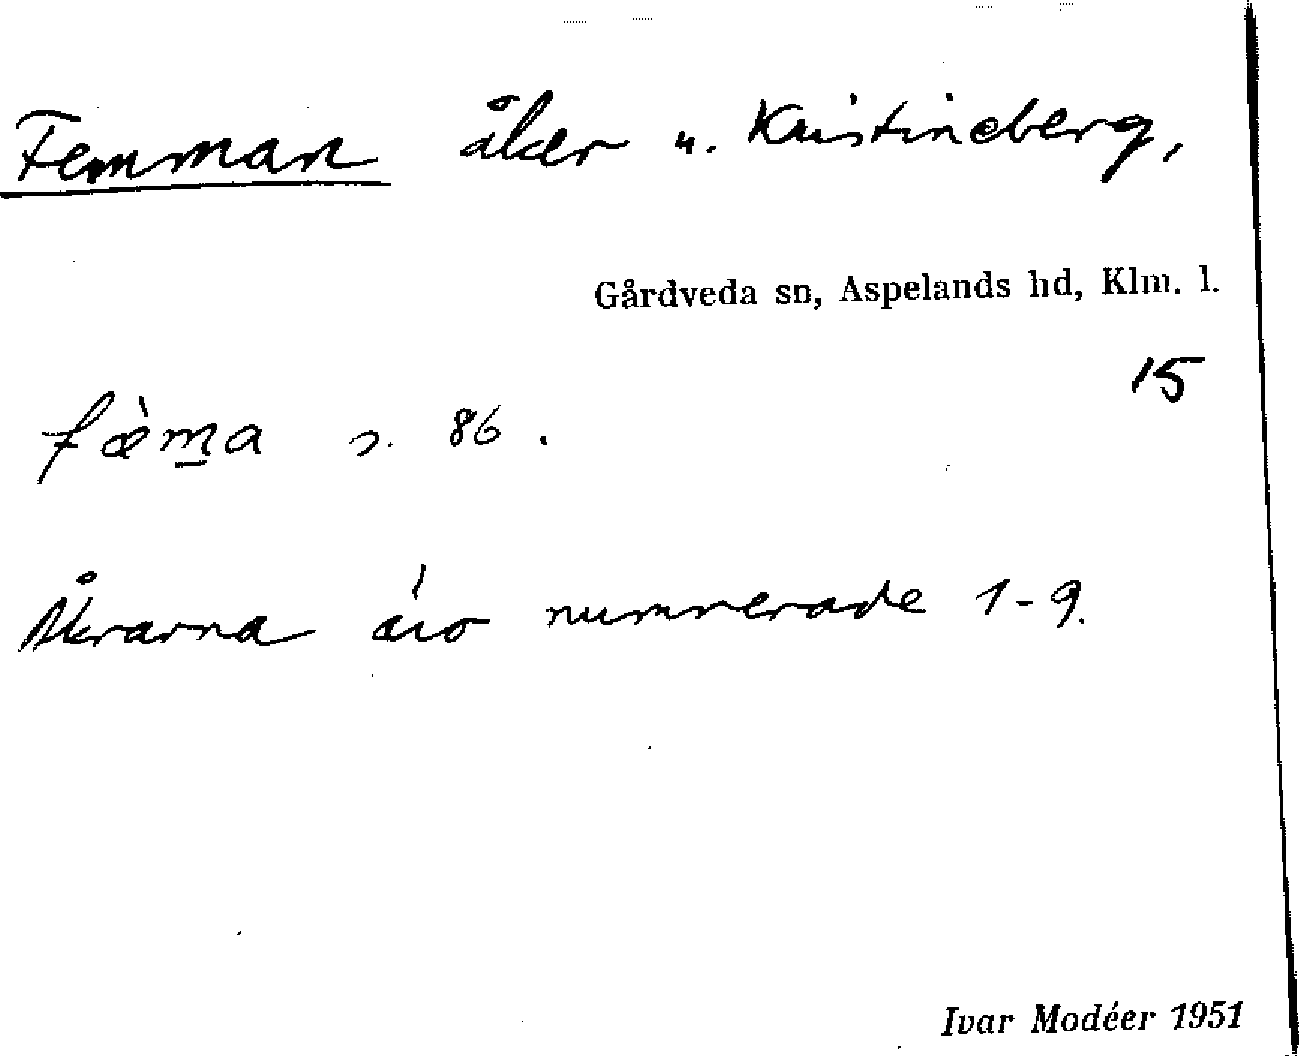 Femman åker u. Kristineberg,
Gårdveda sn, Aspelands hd, Klm. l.
15
fæ̀m̲a s. 86.
Åkrarna äro numrerade 1-9.
Ivar Modéer 1951